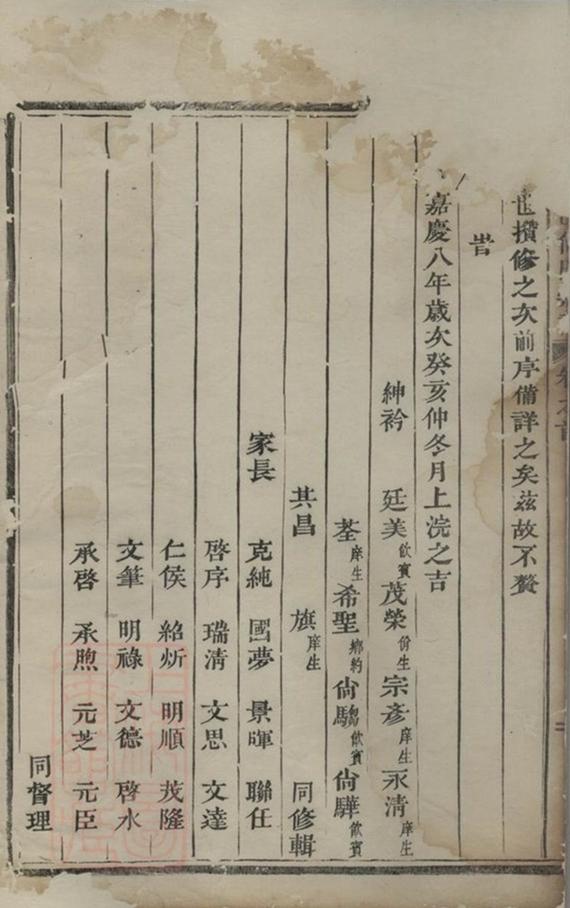 也攢修之次前序備詳之矣兹故不贅
旹
嘉慶八年歲次癸亥仲冬月上浣之吉
紳衿 廷美飲賓 茂榮佾生 宗彥庠生 永清庠生
荃庠生 希聖鄉約 尙騶飲賓 尙驊飲賓
其昌 旗庠生 同修輯
家長 克純 國夢 景暉 聯任
啓序 瑞清 文思 文達
仁侯 紹炘 明順 茂隆
文筆 明祿 文德 啓水
承啓 承煦 元芝 元臣
同督理